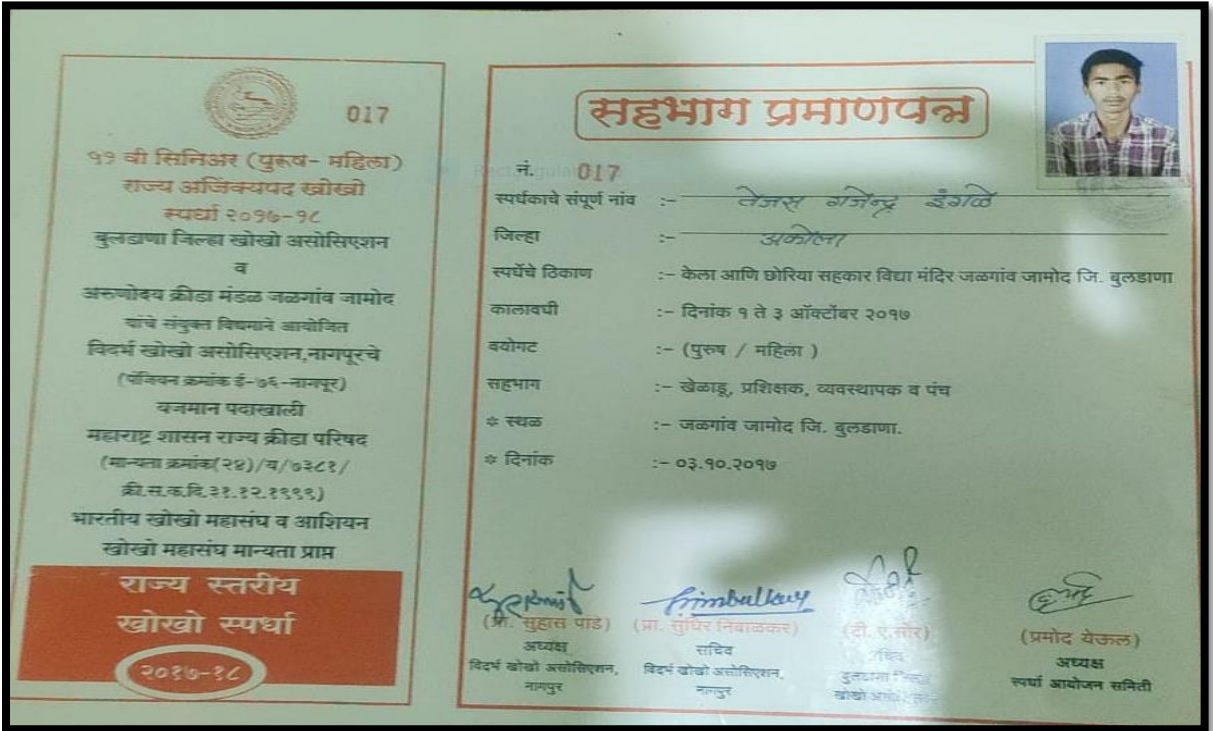 017
५१ वी सिनिअर (पुरूष- महिला)
राज्य अजिंक्यपद खोखो
स्पर्धा २०१७-१८
बुलडाणा जिल्हा खोखो असोसिएशन
व
अरुणोदय क्रीडा मंडळ जळगांव जामोद
यांचे संयुक्त विद्यमाने आयोजित
विदर्भ खोखो असोसिएशन,नागपूरचे
(पंजियन क्रमांक ई-७६-नागपूर)
यजमान पदाखाली
महाराष्ट्र शासन राज्य क्रीडा परिषद
(मान्यता क्रमांक(२४)/य/७३८१/
क्री.स.क.दि.३१.१२.१९९९)
भारतीय खोखो महासंघ व आशियन
खोखो महासंघ मान्यता प्राप्त
राज्य स्तरीय
खोखो स्पर्धा
२०१७-१८
सहभाग प्रमाणपत्र
नं. 017
स्पर्धकाचे संपूर्ण नांव :- तेजस गजेन्द्र इंगळे
जिल्हा :- अकोला
स्पर्धेचे ठिकाण :- केला आणि छोरिया सहकार विद्या मंदिर जळगांव जामोद जि. बुलडाणा
कालावधी :- दिनांक १ ते ३ ऑक्टोंबर २०१७
वयोगट :- (पुरुष / महिला )
सहभाग :- खेळाडू, प्रशिक्षक, व्यवस्थापक व पंच
स्थळ :- जळगांव जामोद जि. बुलडाणा.
दिनांक :- ०३.१०.२०१७
(प्रा. सुहास पांडे) (प्रा. सुधिर निंबाळकर) (टी. ए.सोर) (प्रमोद येऊल)
अध्यक्ष सचिव सचिव अध्यक्ष
विदर्भ खोखो असोसिएशन, विदर्भ खोखो असोसिएशन, बुलडाणा स्पर्धा आयोजन समिती
नागपुर नागपुर खोखो